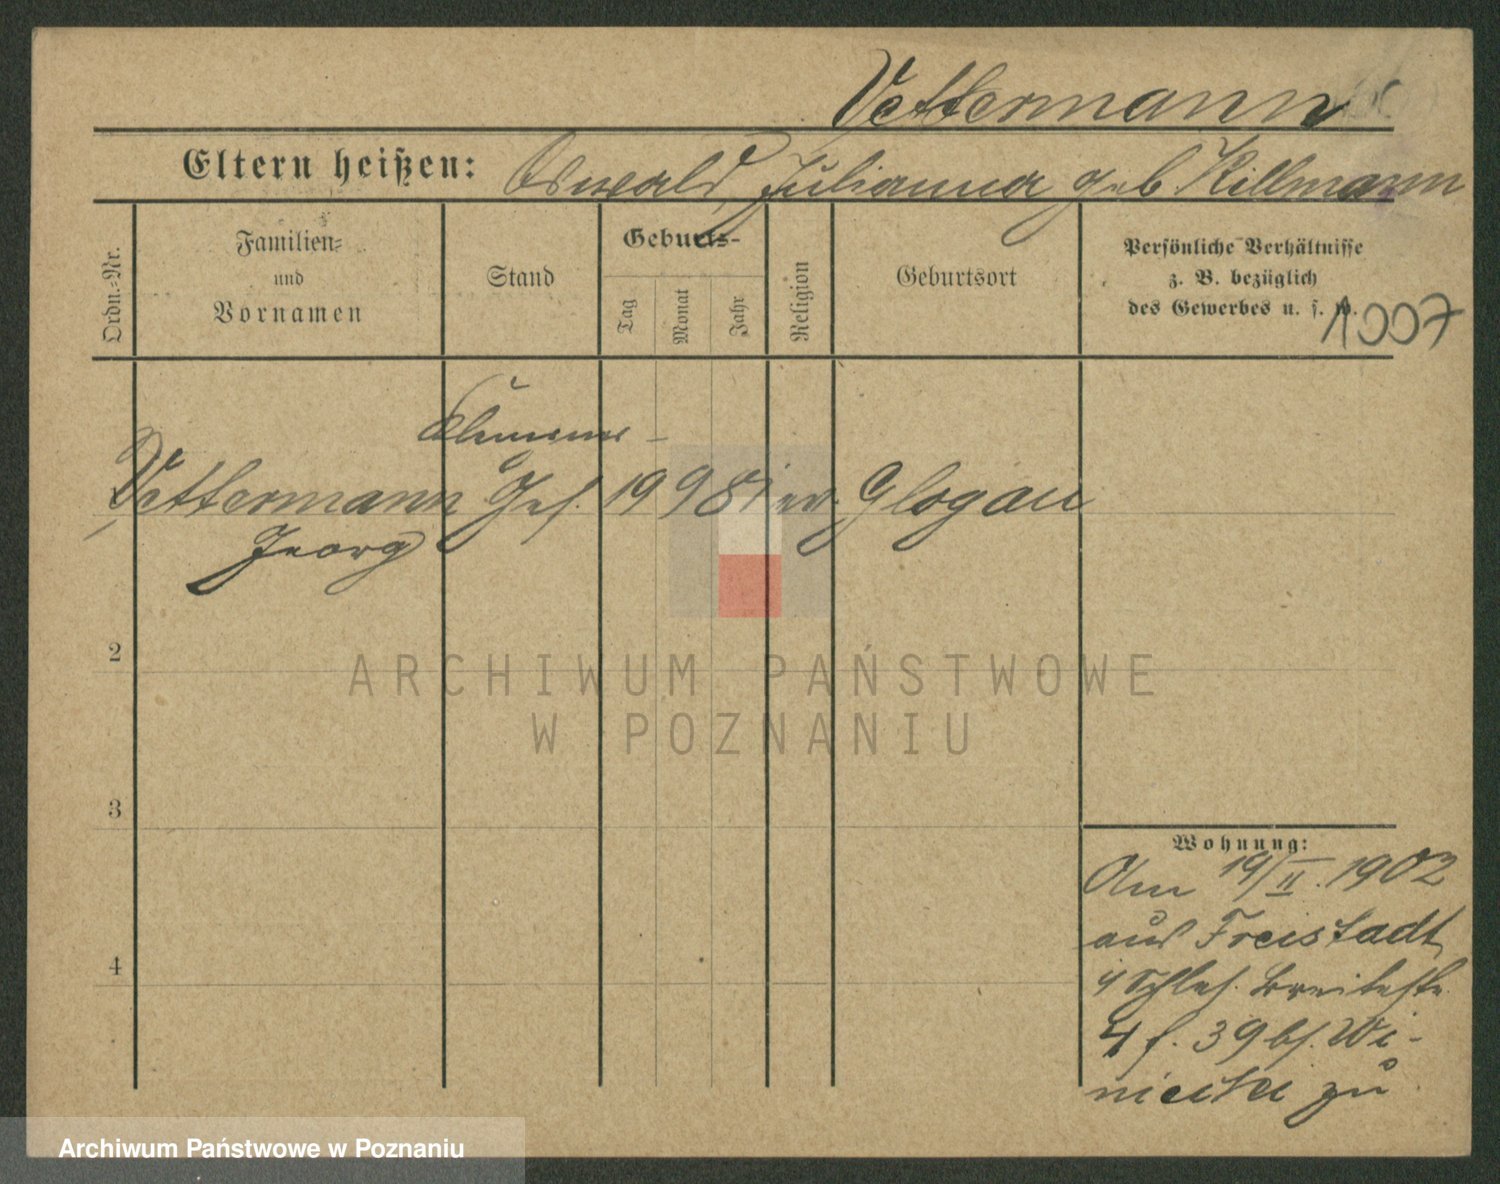 Vettermann
Eltern heißen: Oswald, Julianna geb. Killmann
Ordn.=Nr.
Familien=
und
Vornamen
Stand
Geburts-
Tag
Monat
Jahr
Religion
Geburtsort
Persönliche Verhältnisse
z. B. bezüglich
des Gewerbes u. s. w.
1007
Vettermann
Georg
Klempner-
Ges.
19 9 81
ev.
Glogau
2
3
4
Wohnung:
Am 19/II. 1902
aus Freistadt
i/Schles. Breitestr.
4 f. 39 bei Wi-
niecki zu
ARCHIWUM PAŃSTWOWE
W POZNANIU
Archiwum Państwowe w Poznaniu